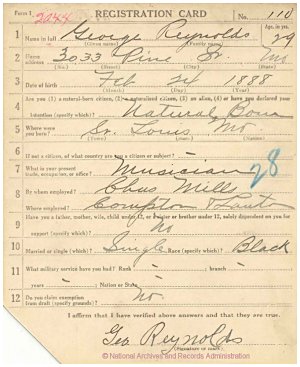 Form 1 2044 REGISTRATION CARD No. 110
1 Name in full George Reynolds Age, in yrs. 29
(Given name) (Family name)
2 Home address 3033 Pine St. Mo
(No.) (Street) (City) (State)
3 Date of birth Feb 24 1888
(Month) (Day) (Year)
4 Are you (1) a natural-born citizen, (2) a naturalized citizen, (3) an alien, (4) or have you declared your
intention (specify which)? Natural Born
5 Where were you born? St. Louis Mo
(Town) (State) (Nation)
6 If not a citizen, of what country are you a citizen or subject?
7 What is your present trade, occupation, or office? Musician 28
8 By whom employed? Chas Mills
Where employed? Compton &
9 Have you a father, mother, wife, child under 12, or a sister or brother under 12, solely dependent on you for
support (specify which)? No
10 Married or single (which)? Single Race (specify which)? Black
11 What military service have you had? Rank ; branch
years ; Nation or State
12 Do you claim exemption from draft (specify grounds)? No
I affirm that I have verified above answers and that they are true.
Geo Reynolds
(Signature or mark)
© National Archives and Records Administration